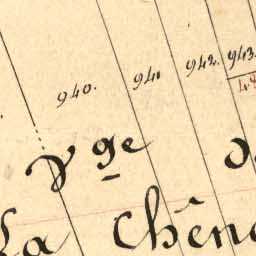 940. 941 942. 943.
Vge
La Chên